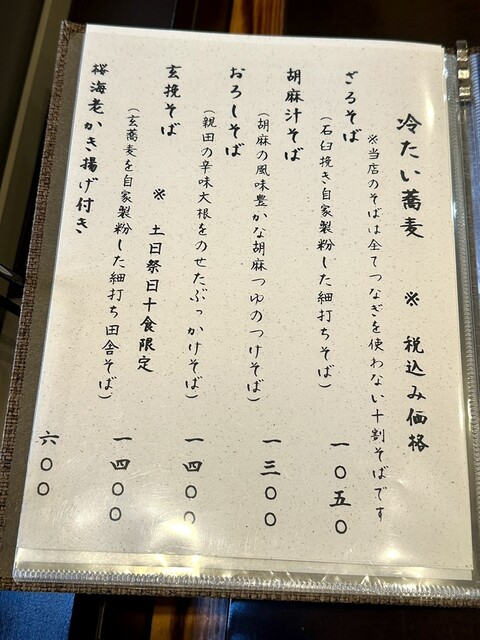 冷たい蕎麦　※　税込み価格
※当店のそばは全てつなぎを使わない十割そばです
ざるそば　一〇五〇
(石臼挽き自家製粉した細打ちそば)
胡麻汁そば　一三〇〇
(胡麻の風味豊かな胡麻つゆのつけそば)
おろしそば　一四〇〇
(親田の辛味大根をのせたぶっかけそば)
玄挽そば　※　土日祭日十食限定　一四〇〇
(玄蕎麦を自家製粉した細打ち田舎そば)
桜海老かき揚げ付き　六〇〇